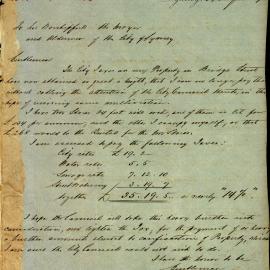 To His Worshipfull the Mayor
and Aldermen of the City of Sydney
Gentlemen
The City Taxes on my Property in Bridge Street
have now attained so great a height, that I am no longer pay them
without calling the attention of the City Council thereto in the
hope of receiving some amelioration.
I have two Stores 30 feet wide each, one of them is let for
£ 208 per annum, and the other I occupy myself, so that
£ 260 would be the Rental for the two Stores.
I am assessed to pay the following Taxes:
City rates £ 19. 2.
Water rates 5. 5
Sewage rate 7. 12. 10
3. 19. 7
together £ 35. 19. 5 or nearly "14%"
I hope the Council will take this heavy burthen into
consideration, and lighten the Tax, for the payment of so heavy
a further amount almost to confiscation of Property, which
I am sure the City Council would not wish to do.
I have the honor to be
Gentlemen